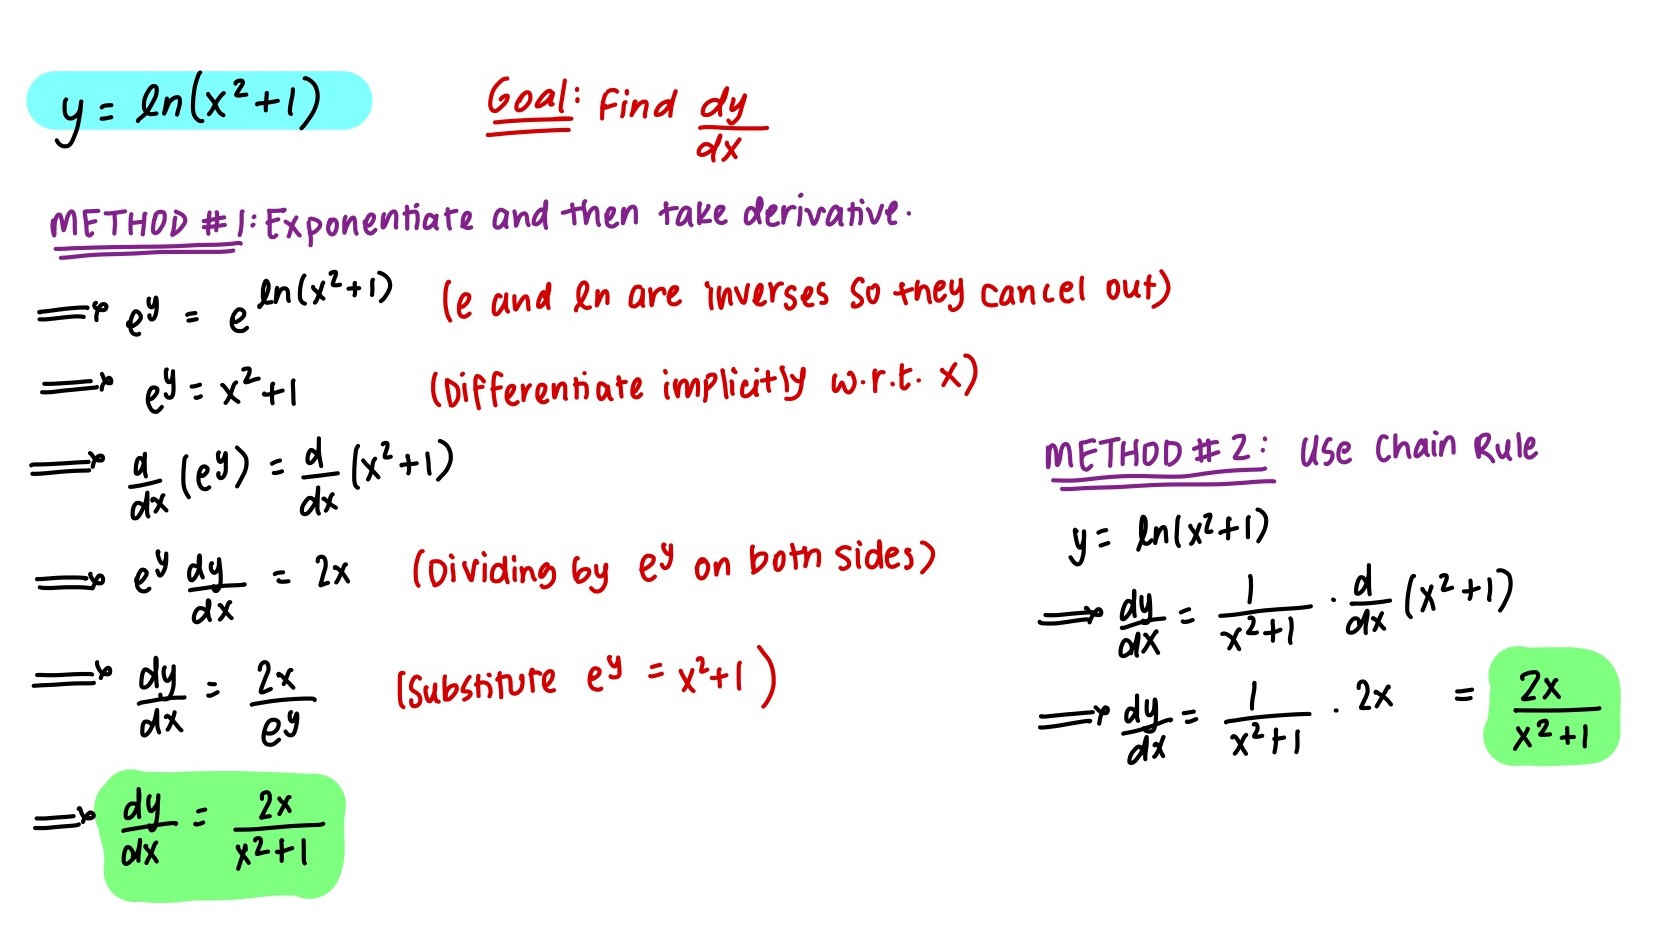 y = ln(x²+1) Goal: Find dy/dx
METHOD #1: Exponentiate and then take derivative.
⟹ e^y = e^ln(x²+1) (e and ln are inverses so they cancel out)
⟹ e^y = x²+1 (Differentiate implicitly w.r.t. x)
⟹ d/dx (e^y) = d/dx (x²+1)
⟹ e^y dy/dx = 2x (Dividing by e^y on both sides)
⟹ dy/dx = 2x/e^y (Substitute e^y = x²+1)
⟹ dy/dx = 2x/(x²+1)
METHOD #2: Use Chain Rule
y = ln(x²+1)
⟹ dy/dx = 1/(x²+1) · d/dx (x²+1)
⟹ dy/dx = 1/(x²+1) · 2x = 2x/(x²+1)